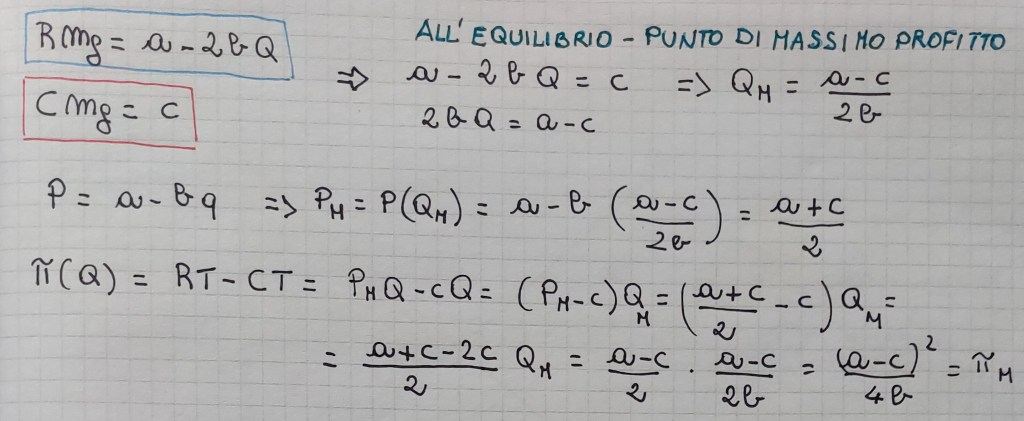 RMg = a - 2bQ
CMg = c
ALL'EQUILIBRIO - PUNTO DI MASSIMO PROFITTO
=> a - 2bQ = c => Q_M = (a-c)/(2b)
2bQ = a-c
P = a - bq => P_M = P(Q_M) = a - b ((a-c)/(2b)) = (a+c)/2
π(Q) = RT - CT = P_M Q - cQ = (P_M - c) Q_M = ((a+c)/2 - c) Q_M =
= (a+c-2c)/2 Q_M = (a-c)/2 · (a-c)/(2b) = (a-c)²/(4b) = π_M